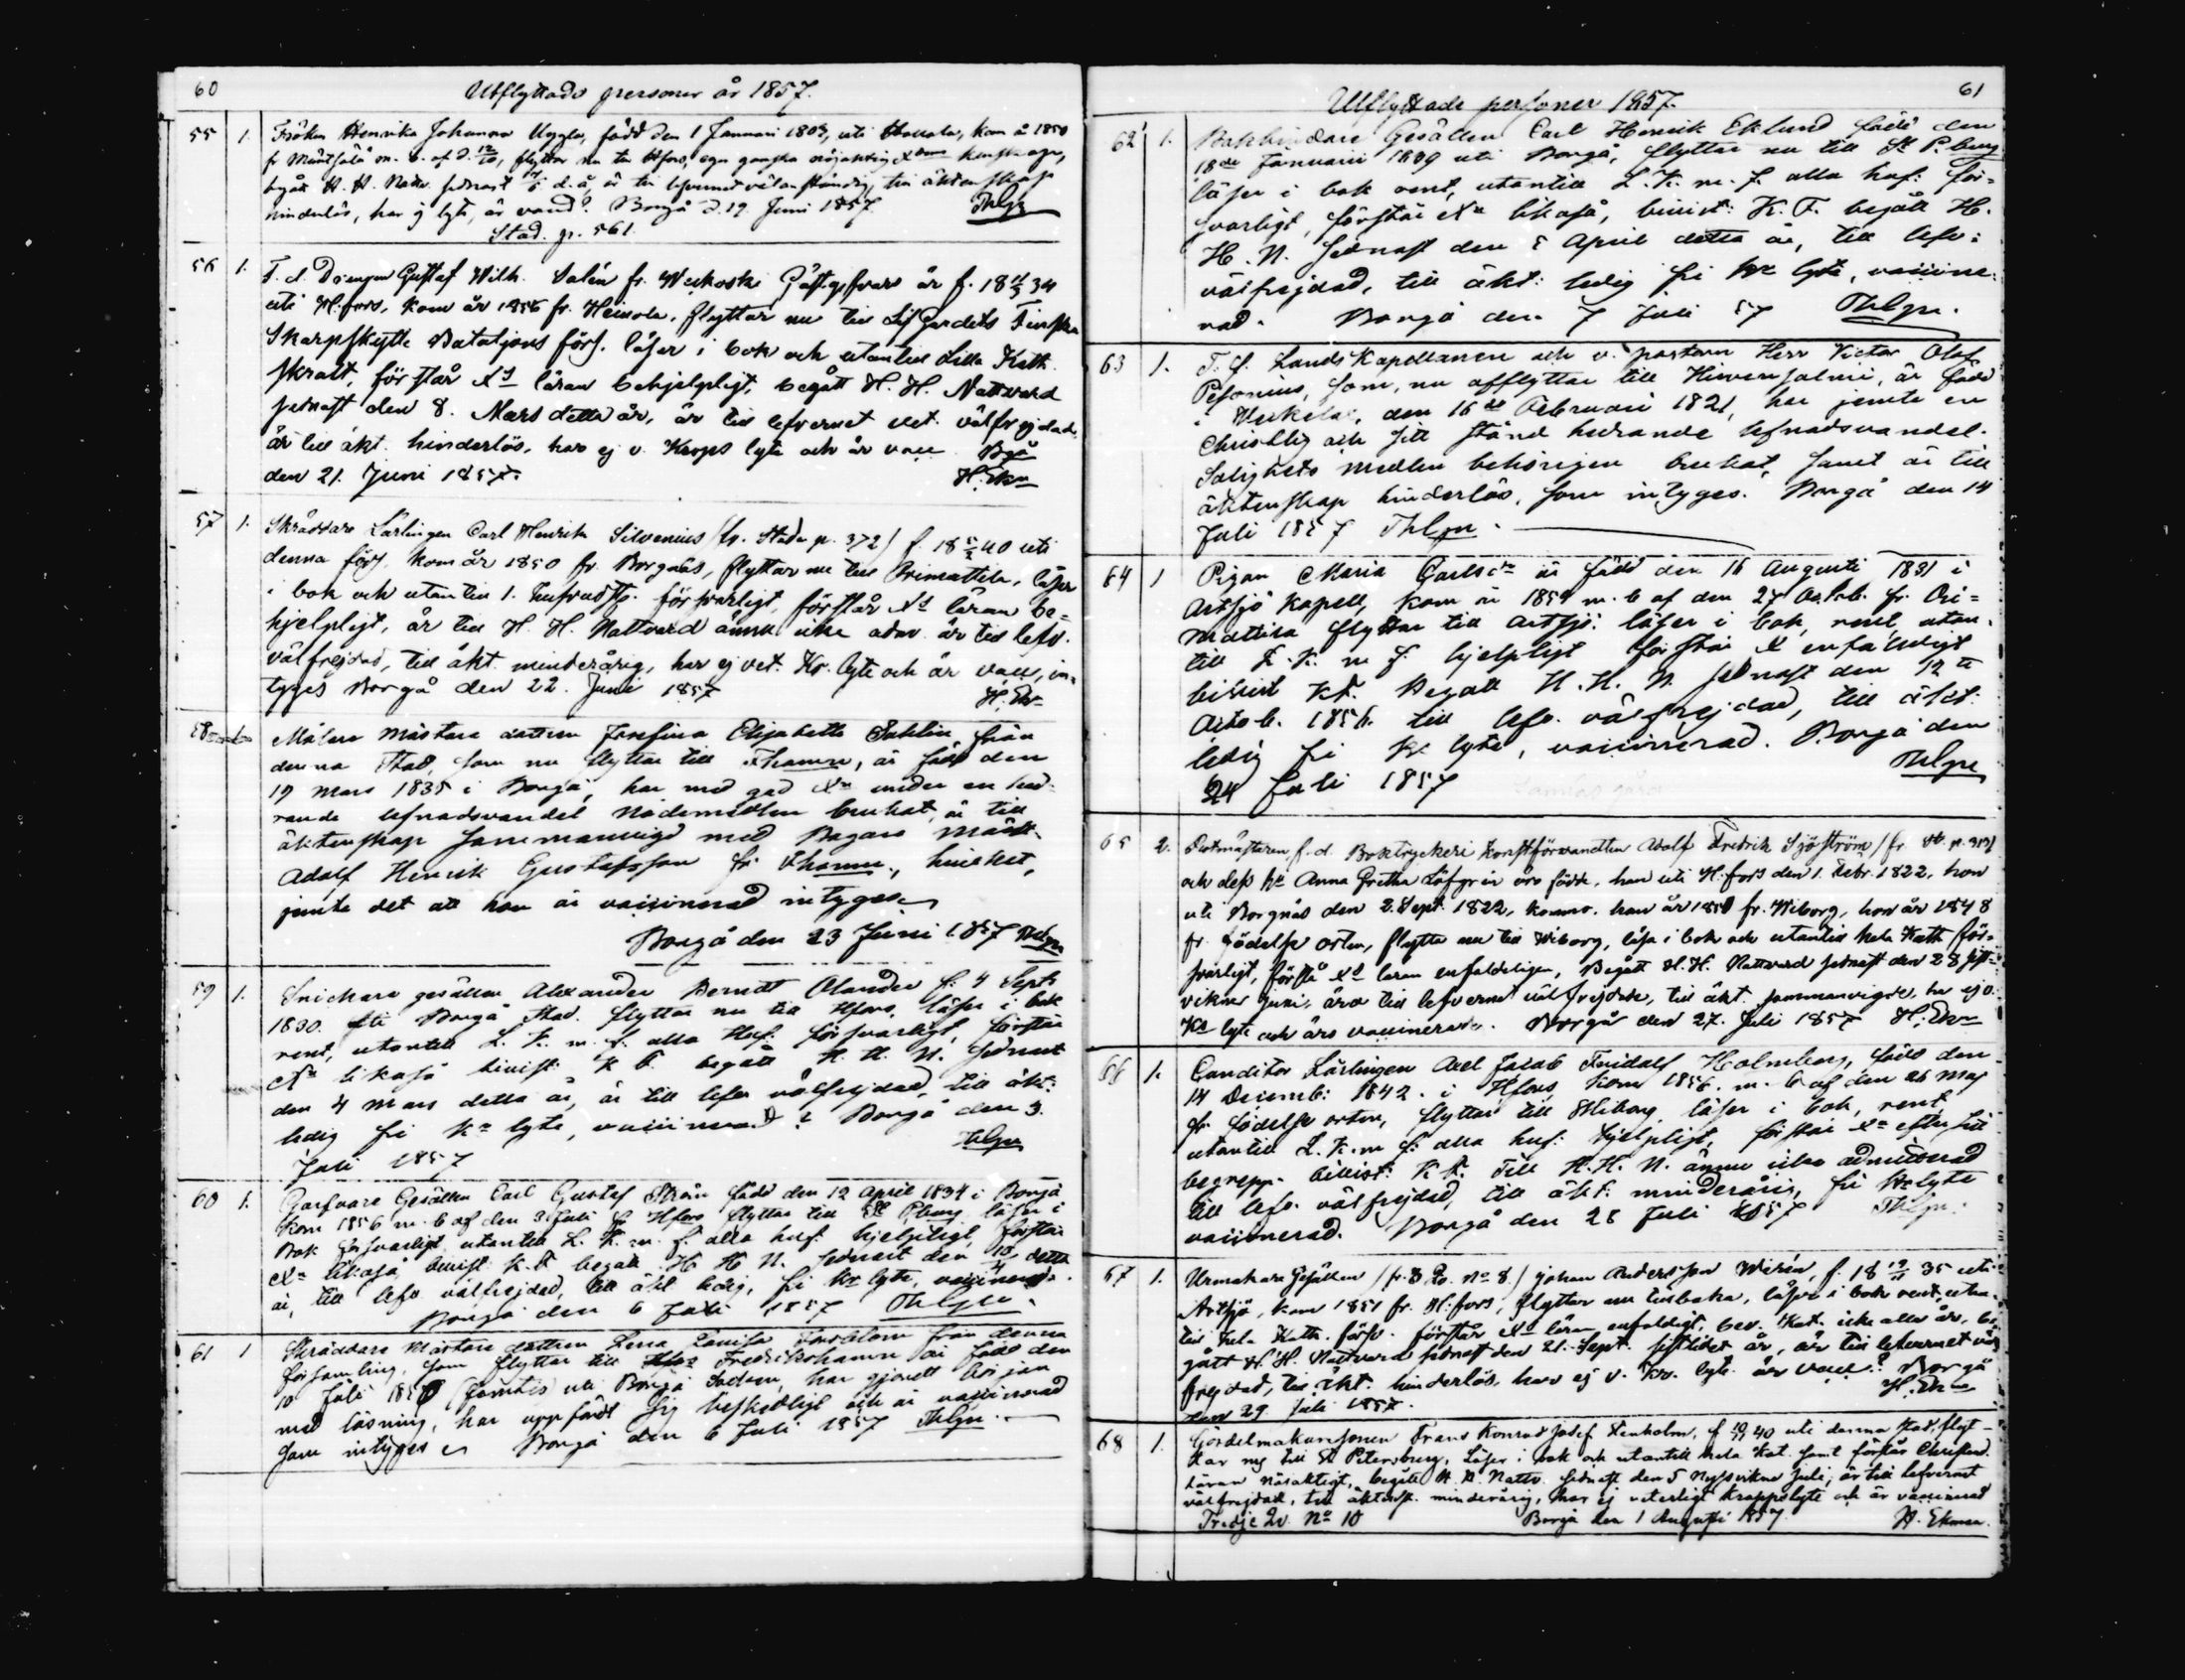 60
Utflyttade personer år 1857.
55 1. Fröken Henrika Johanna Uggla, född den 1 Januari 1803, uti kom å 1850
fr Mäntsälä m. b. af d. 12/10, flyttar nu till Hfors, eger ganska kunskaper,
begått H. H. Nattv. sednast d. å, är till lefvernet välanständig, till äktenskap
hinderlös, har ej lyte, är vacc? Borgå d. 19 Juni 1857. Thlgn
Stad. p. 561.
56 1. F. d. Drengen Gustaf Wilh. Salén fr. Weckoski Gästgifvare är f. 18 34
uti H:fors, kom år 1856 fr. Heinola, flyttar nu till Lif Gardets Finska
Skarpskytte Bataljons förs. läser i bok och utantill Lilla Kath.
skralt, förstår Xs läran behjelpligt, begått H. H. Nattvard
sednast den 8. Mars detta år, är till lefvernet vet. välfrejdad,
är till äkt. hinderlös, har ej v. Krops lyte och är vacc Bgå
den 21. Juni 1857. H. Ekn
57 1. Skräddare Lärlingen Carl Henrik Silvenius (fr. Stads p. 372) f. 18 40 uti
denna förs. kom år 1850 fr. Borgnäs, flyttar nu till Orimattila, läser
i bok och utantill 1. Hufvudst. försvarligt, förstår Xs läran be-
hjelpligt, är till H. H. Nattvard ännu icke adm. är till lefv.
välfrejdad, till äkt. minderårig, har ej vet. Kr. lyte och är vacc, in-
tyges Borgå den 22. Juni 1857 H. Ekn
58 1 Målare Mästare dottern Josefina Elisabeth Sahlin från
denna Stad, som nu flyttar till Fhamn, är född den
19 Mars 1835 i Borgå, har med god Xn under en hed-
rande lefnadsvandel nådemedlen brukat, är till
äktenskap sammanvigd med Bagare Mäst.
Adolf Henrik Gustafsson fr. Fhamn, hvilket,
jemte det att hon är vaccinerad intygas
Borgå den 23 Juni 1857 Thlgn
59 1. Snickare gesällen Alexander Berndt Olander f. 4 Sept.
1830. uti Borgå Stad. flyttar nu till Hfors, läser i bok
rent, utantill L. K. m. f. alla Huf: försvarligt, förstår
Xn likaså bivist K F. begått H. H. N. sednast
den 4 Mars detta år, är till lefv välfrejdad, till äkt:
ledig fri Krs lyte, vaccinerad? Borgå den 3.
Juli 1857 Thlgn
60 1. Garfvare Gesällen Carl Gustaf född den 12 April 1834 i Borgå
kom 1856 m. b af den 3. Juli fr Hfors flyttar till St P.burg läser i
bok försvarligt utantill L. K. m. f. alla huf: hjelpligt, förstår
Xn likaså, bivist K. F begått H H N. sednast den 10/4 detta
år, till lefv välfrejdad, till äkt ledig, fri Krs lyte, vaccinerad.
Borgå den 6 Juli 1857 Thlgn.
61 1 Skräddare Mästare dottern Lena Lovisa från denna
församling, som flyttar till Fredrikshamn är född den
10 Juli 1850 uti Borgå Socken, har gjordt början
med läsning, har uppfört sig beskedligt och är vaccinerad
som intyges Borgå den 6 Juli 1857 Thlgn.
61
Utflyttade personer 1857.
62 1. Bokbindare Gesällen Carl Henrik Eklund född den
18de Januari 1839 uti Borgå, flyttar nu till St P.burg
läser i bok rent, utantill L. K. m. f. alla huf: för-
svarligt, förstår Xn likaså, bivist: K. F. begått H.
H. N. sednast den 5 April detta år, till lefv:
välfrejdad, till äkt: ledig fri Krs lyte, vaccine-
rad. Borgå den 7 Juli 57 Thlgn.
63 1. T. f. Lands Kapellanen och v. pastorn Herr Victor Olof
Pesonius, som, nu afflyttar till Hirvensalmi, är född
i den 16de Februari 1821, har jemte en
Christlig och sitt stånd hedrande lefnadsvandel.
Salighets medlen behörigen brukat, samt är till
äktenskap hinderlös, som intyges. Borgå den 14
Juli 1857 Thlgn.
64 1 Pigan Maria Carlsdr är född den 16 Augusti 1831 i
Artsjö kapell, kom år 1854 m. b af den 27 Octob. fr. Ori-
mattila flyttar till Artsjö: läser i bok, rent, utan-
till L. K. m f. hjelpligt förstår X enfaldigt
bivist K.F. Begått H. H. N. sednast den 12te
Octob. 1856. till lefv. välfrejdad, till äkt:
ledig fri Krs lyte, vaccinerad. Borgå den
24 Juli 1857 Thlgn
65 2. f. d. Boktryckeri Konstförvandten Adolf Fredrik Sjöström (fr. St. p. 313)
och dess hu Anna Gretha Löfgrén äro födde, han uti H:fors den 1. Febr. 1822, hon
uti Borgnäs den 2. Sept. 1822, kommo. han år 1851 fr. Wiborg, hon år 1848
fr. födelse orten, flytta nu till Wiborg, läsa i bok och utantill hela Kath för-
svarligt, förstå Xs läran enfaldeligen, Begått H. H. Nattvard sednast den 28 sist-
vikne Juni, äro till lefvernet välfrejdade, till äkt. sammanvigde, ha ej v.
Krs lyte och äro vaccinerade. Borgå den 27. Juli 1857 H. Ekn
66 1. Conditor Lärlingen Axel Jakob Fridolf Holmberg, född den
14 Decemb: 1842. i Hfors, kom 1856. m. b af den 26 Maj
fr födelse orten, flyttar till Wiborg läser i bok, rent,
utantill L. K. m f: alla huf: hjelpligt, förstår Xn efter sitt
begrepp. bivist: K F. Till H. H. N. ännu icke admitterad
till lefv. välfrejdad, till äkt: minderårig, fri Krs lyte
vaccinerad. Borgå den 28 Juli 1857 Thlgn.
67 1. Urmakare Gesällen (fr. 3 Qv. No 8.) Johan Andersson Wirén, f. 18 19/11 35 uti
Artsjö, kom 1851 fr. H:fors, flyttar nu tillbaka, läser i bok rent, utan-
till hela Kath. försv. förstår Xn läran enfaldigt, bev. Kat. icke alla år, be-
gått H. H. Nattvard sednast den 21. Sept. sistlidet år, är till lefvernet väl-
frejdad, till äkt. hinderlös, har ej v. Kr. lyte. är vacc.? Borgå
den 29 Juli 1857. H. Ekn
68 1. Gördelmakaresonen Frans Konrad Josef Stenholm, f 40 uti denna stad, flyt-
tar nu till St Petersburg, Läser i bok och utantill hela Kat. samt förstår Christend.
Läran nöjaktigt, begått H. H. Nattv. sednast den 5 Nyssvikne Juli, är till lefvernet
välfrejdad, till äktensk. minderårig, har ej veterligt kroppslyte och är vaccinerad
Tredje Qv. No 10 Borgå den 1 Augusti 1857. H. Ekman.